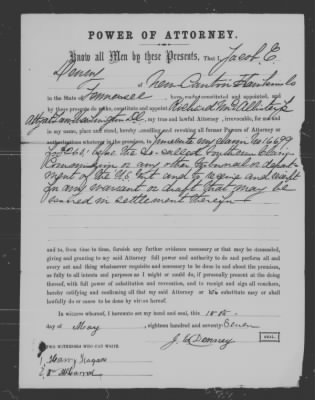 POWER OF ATTORNEY.
Know all Men by these Presents, That I, Jacob E.
Denney of New Canton
in the State of Tennessee have, made constituted and appointed, and
by these presents do make, constitute and appoint Richard McAllister Jr
Atty at Law Washington D.C. my true and lawful Attorney, irrevocable, for me and
in my name, place and stead, hereby annulling and revoking all former Powers of Attorney or
authorizations whatever in the premises, to prosecute my claim No 16699
before the so-called Southern Claims
Commission or any other tribunal or depart-
ment of the U.S. Govt and to receive and receipt
for any warrant or draft that may be
issued in settlement thereof
and to, from time to time, furnish any further evidence necessary or that may be demanded,
giving and granting to my said Attorney full power and authority to do and perform all and
every act and thing whatsoever requisite and necessary to be done in and about the premises,
as fully to all intents and purposes as I might or could do, if personally present at the doing
thereof, with full power of substitution and revocation, and to receipt and sign all vouchers,
hereby ratifying and confirming all that my said Attorney or his substitute may or shall
lawfully do or cause to be done by virtue hereof.
In witness whereof, I hereunto set my hand and seal, this 18th
day of May, eighteen hundred and seventy-Seven
J. E. Denney SEAL.
TWO WITNESSES WHO CAN WRITE.
1, Harry
2,